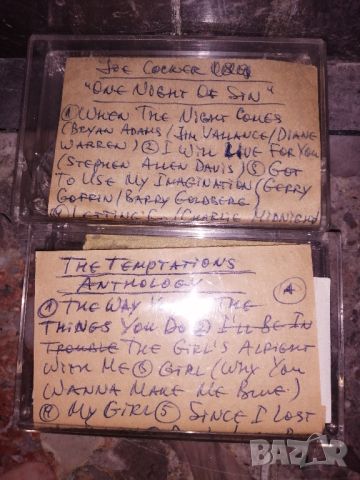 JOE COCKER
"ONE NIGHT OF SIN"
① WHEN THE NIGHT COMES
(BRYAN ADAMS/JIM VALLANCE/DIANE
WARREN) ② I WILL LIVE FOR YOU
(STEPHEN ALLEN DAVIS) ③ GOT
TO USE MY IMAGINATION (GERRY
GOFFIN/BARRY GOLDBERG)
④ LETTING /CHARLIE MIDNIGHT
THE TEMPTATIONS
ANTHOLOGY
A
① THE WAY THE
THINGS YOU DO ② I'LL BE IN
TROUBLE THE GIRL'S ALRIGHT
WITH ME ③ GIRL (WHY YOU
WANNA MAKE ME BLUE)
④ MY GIRL ⑤ SINCE I LOST
BAZAR